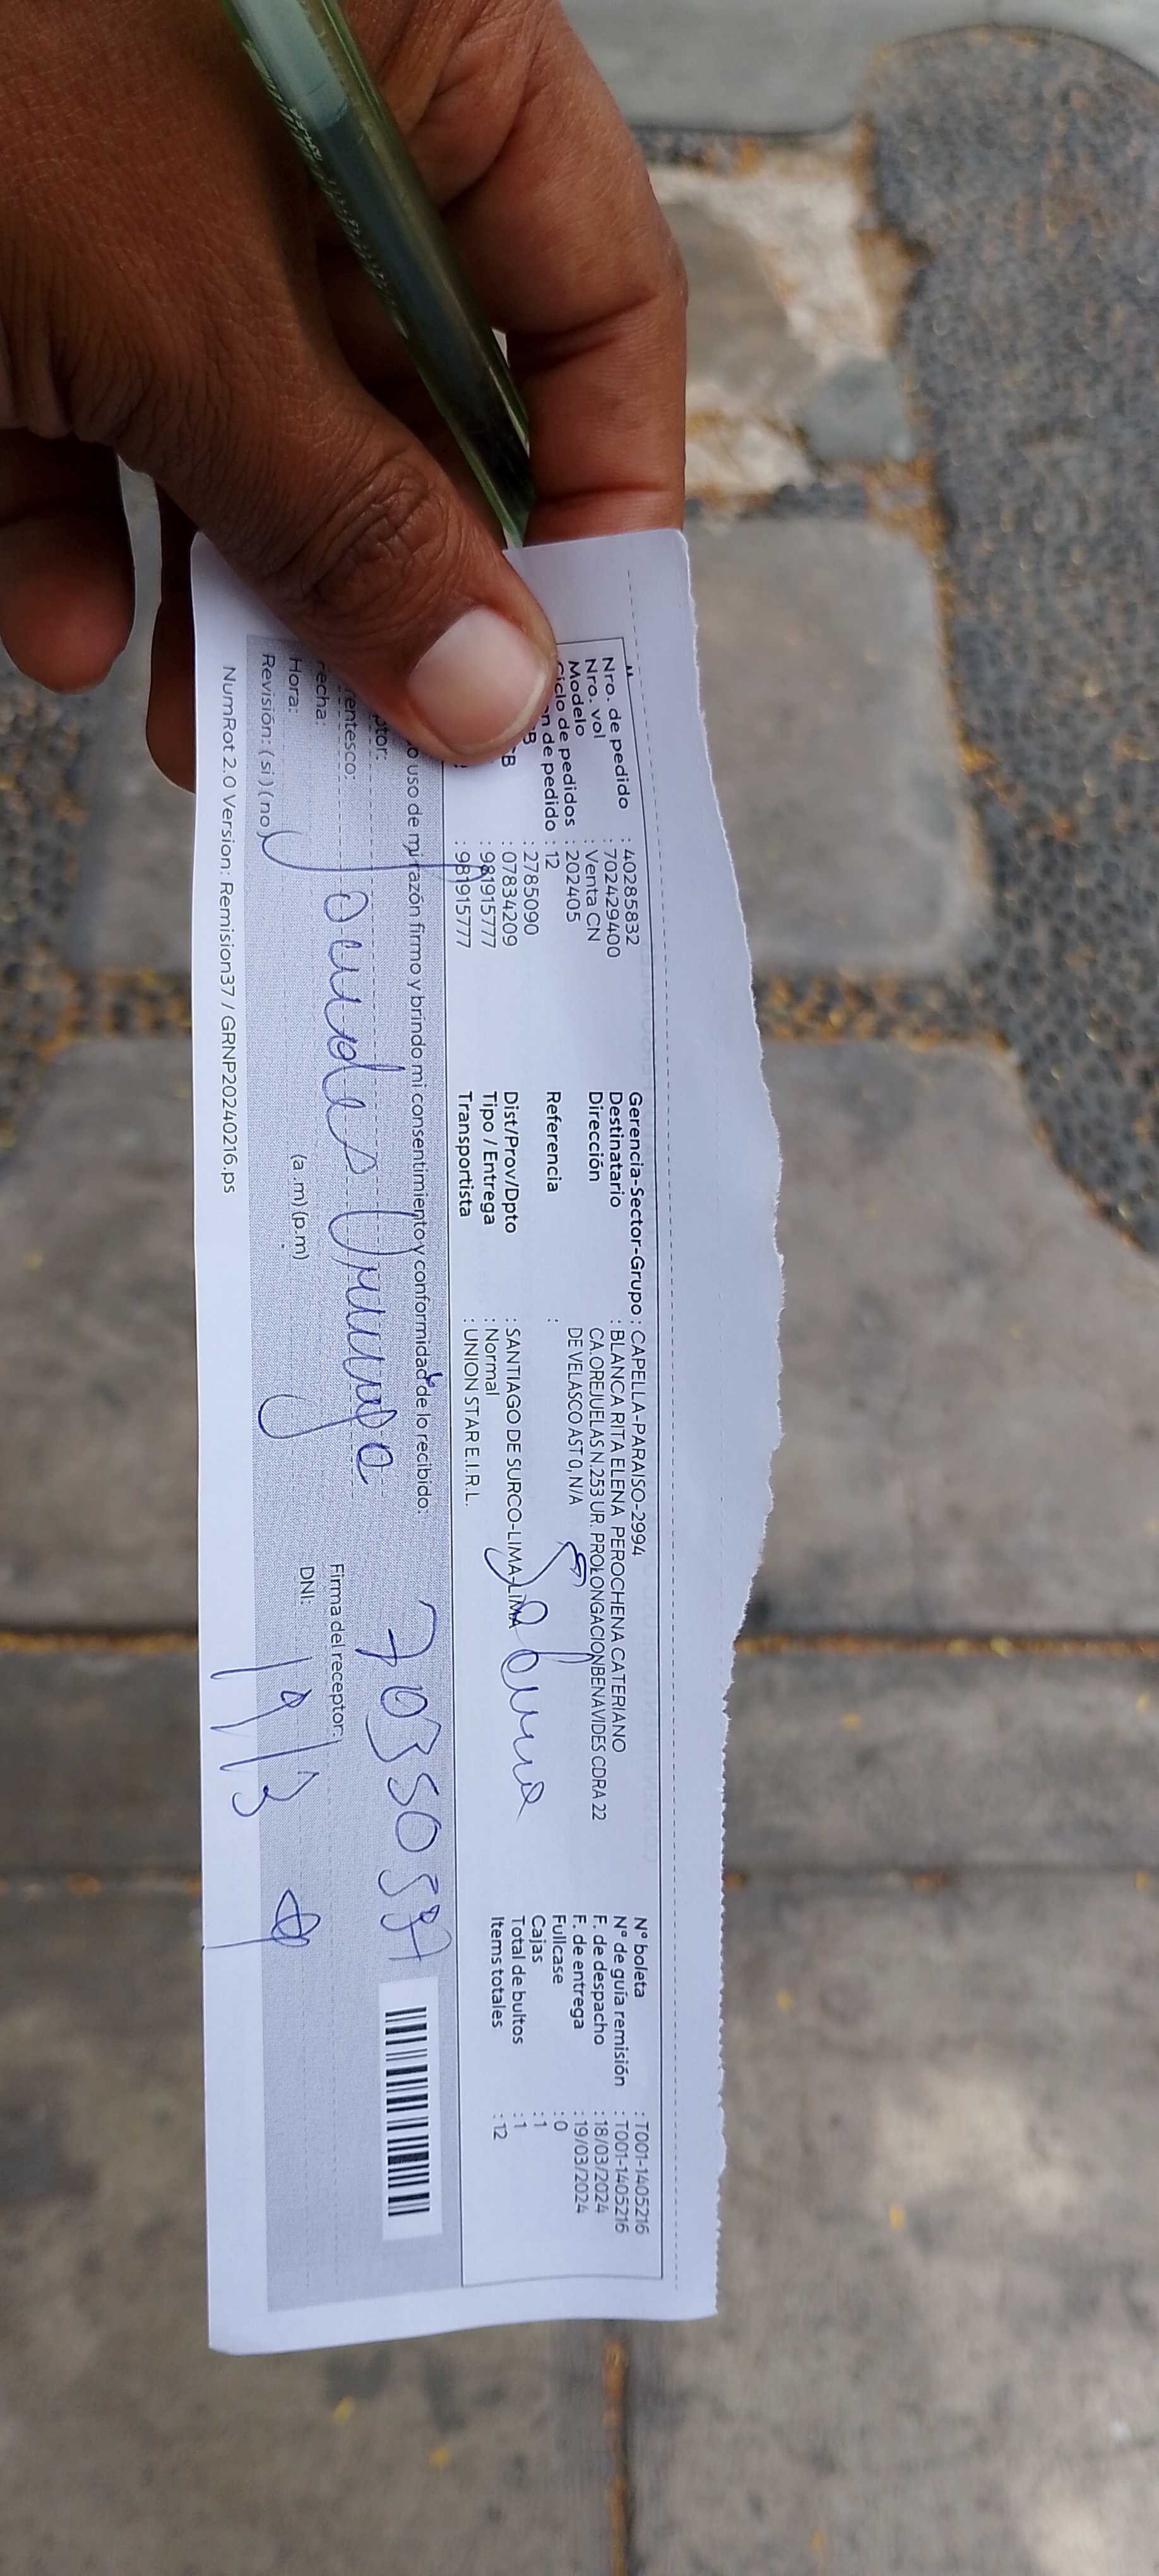 Nro. de pedido : 40285832
Nro. vol : 702429400
Modelo : Venta CN
Ciclo de pedidos : 202405
n de pedido : 12
B : 2785090
CB : 07834209
: 981915777
: 981915777
Gerencia-Sector-Grupo : CAPELLA-PARAISO-2994
Destinatario : BLANCA RITA ELENA PEROCHENA CATERIANO
Dirección : CA.OREJUELAS N.253 UR. PROLONGACIONBENAVIDES CDRA 22
DE VELASCO AST 0, N/A
Referencia :
Dist/Prov/Dpto : SANTIAGO DE SURCO-LIMA-LIMA
Tipo / Entrega : Normal
Transportista : UNION STAR E.I.R.L.
N° boleta : T001-1405216
N° de guía remisión : T001-1405216
F. de despacho : 18/03/2024
F. de entrega : 19/03/2024
Fullcase : 0
Cajas : 1
Total de bultos : 1
Items totales : 12
o uso de mi razón firmo y brindo mi consentimiento y conformidad de lo recibido:
ptor:
rentesco:
echa:
Hora: (a.m) (p.m)
Revisión: ( si ) ( no )
Firma del receptor:
DNI:
19/3
NumRot 2.0 Version: Remision37 / GRNP20240216.ps